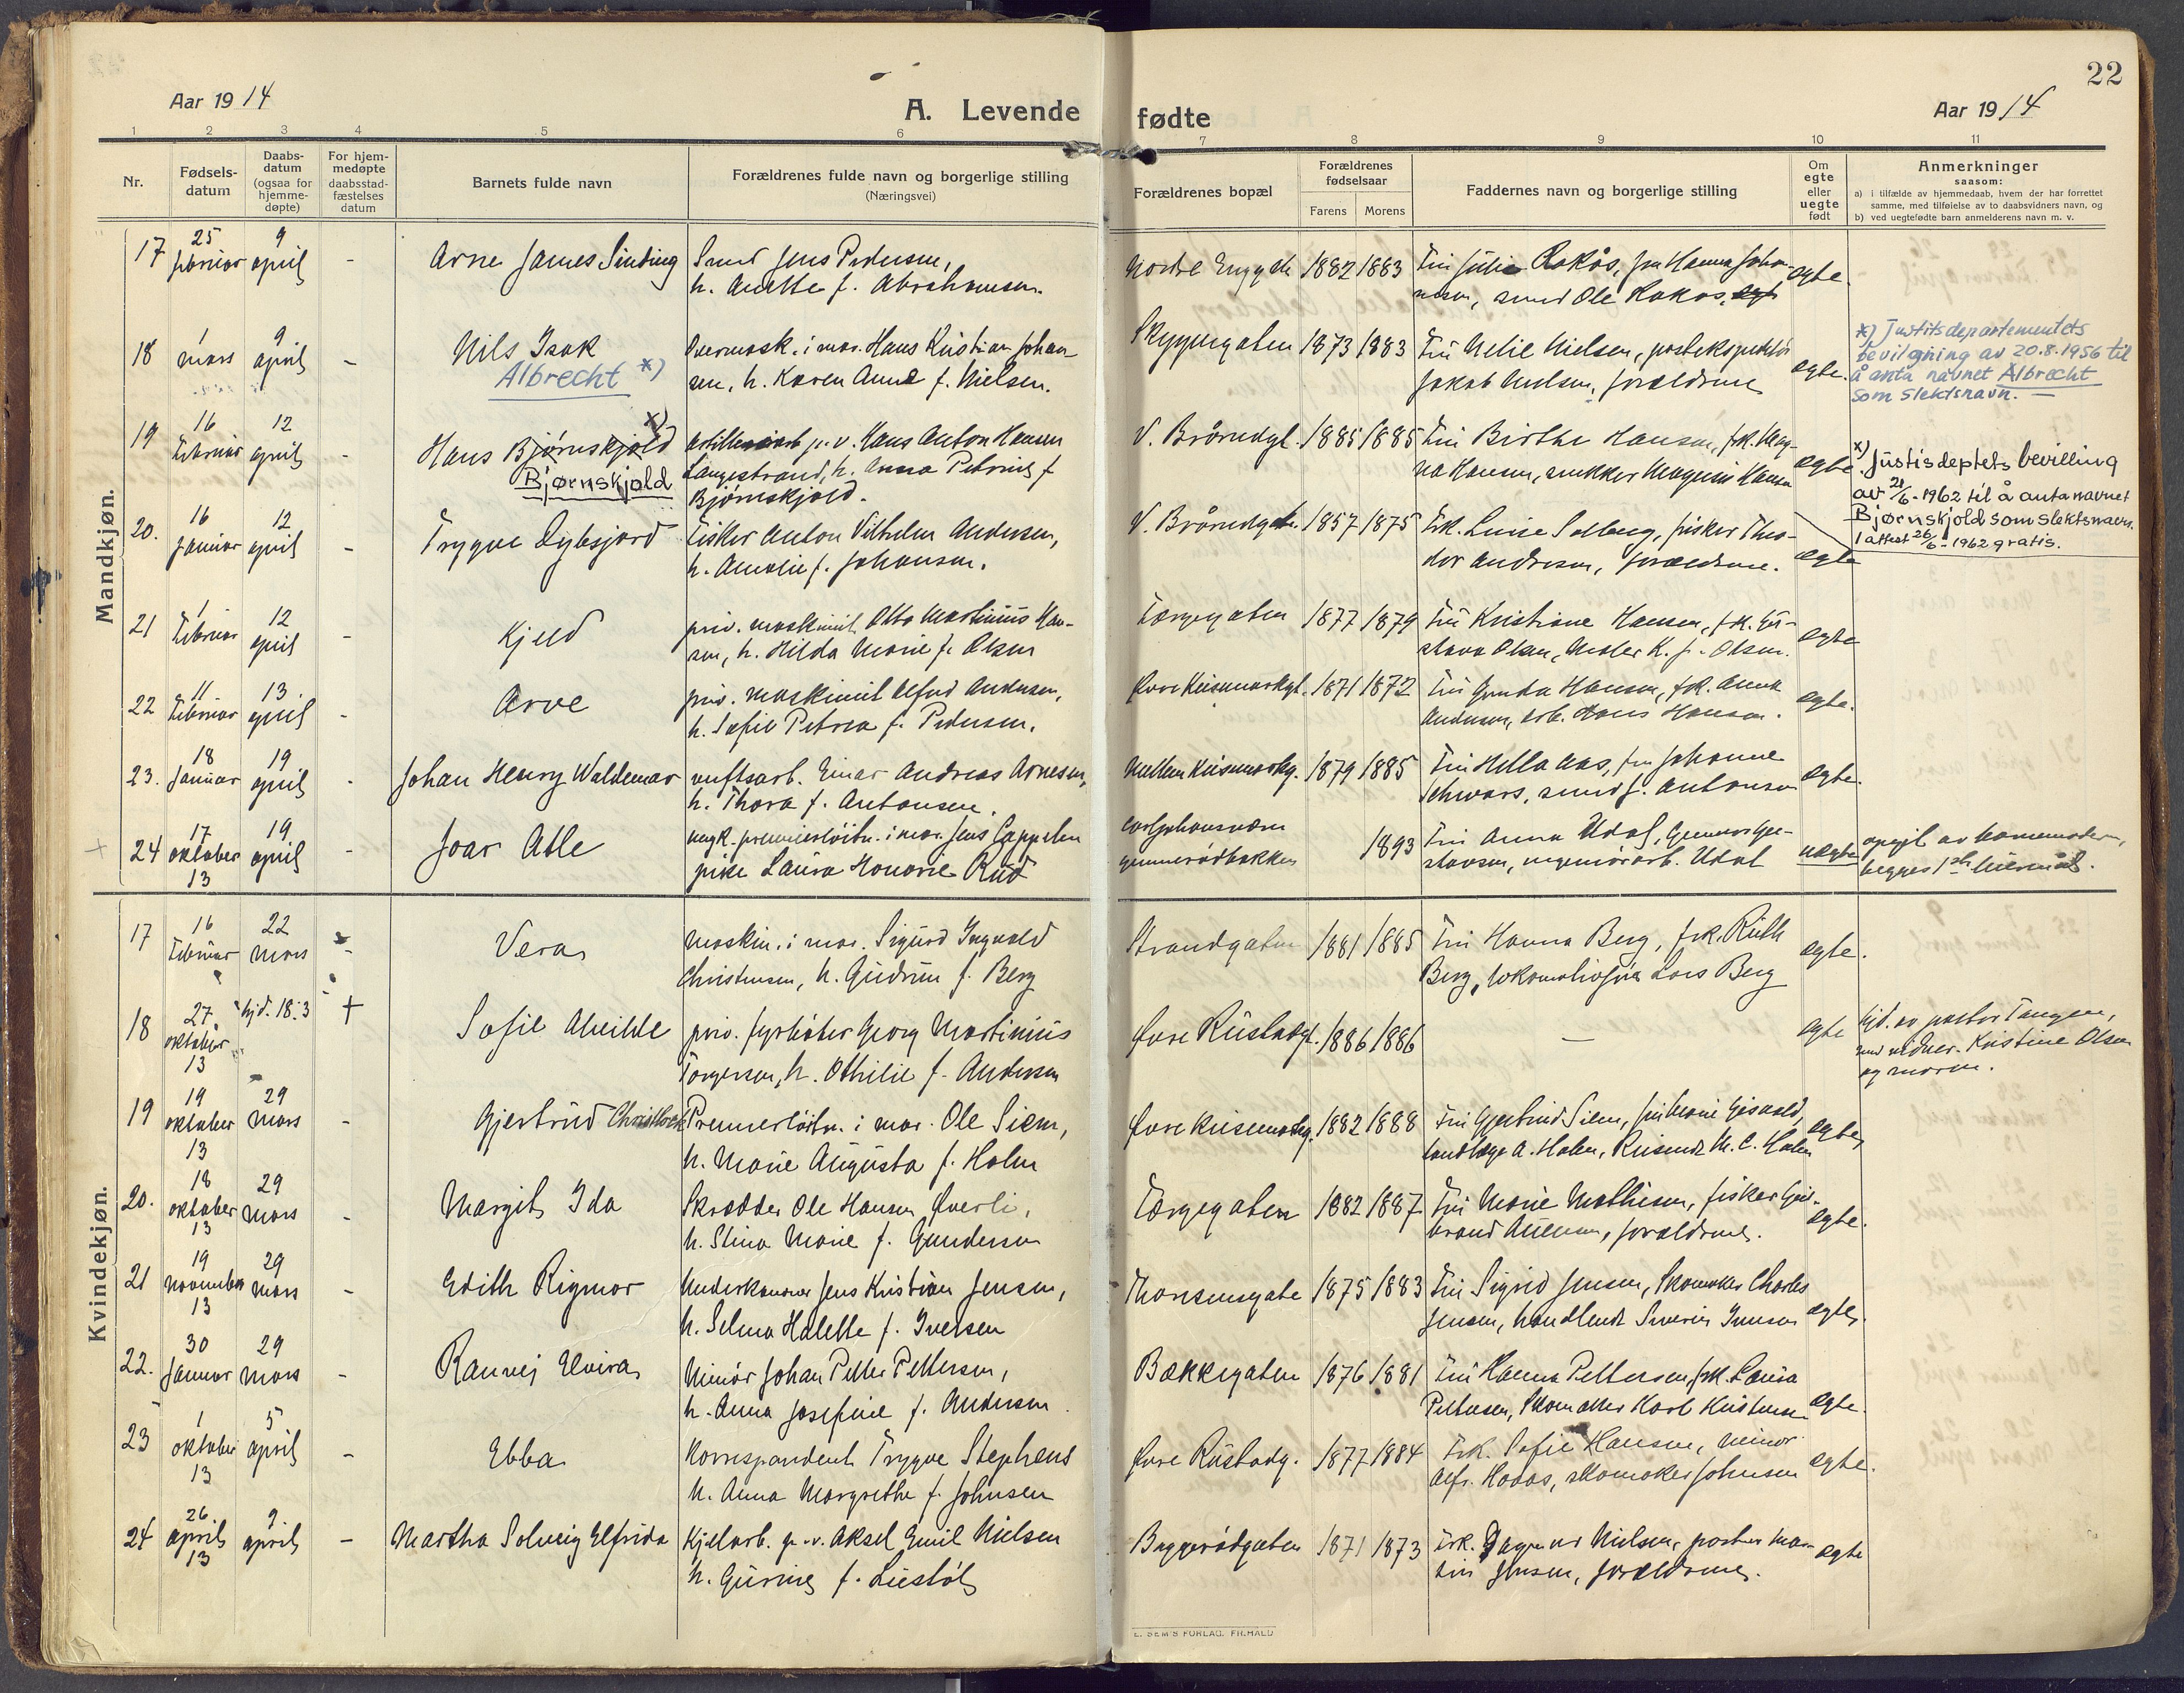 22
Aar 1914
A. Levende fødte
Aar 1914
1 2 3 4 5 6 7 8 9 10 11
Nr.
Fødsels-
datum
Daabs-
datum
(ogsaa for
hjemme-
døpte)
For hjem-
medøpte
daabsstad-
fæstelses
datum
Barnets fulde navn
Forældrenes fulde navn og borgerlige stilling
(Næringsvei)
Forældrenes bopæl
Forældrenes
fødselsaar
Farens Morens
Faddernes navn og borgerlige stilling
Om
egte
eller
uegte
født
Anmerkninger
saasom:
a) i tilfælde av hjemmedaab, hvem der har forrettet
samme, med tilføielse av to daabsvidners navn, og
b) ved uegtefødte barn anmelderens navn m. v.
Mandkjøn.
17 25 februar 9 april - Arne James Sinding Smed Jens Pedersen, 1882 1883 Fru Julie Rakås, fru Hanna Johan- egte.
h. Anette f. Abrahamsen. nesen, smed Ole Rakås,
18 1 mars 9 april - Nils Isak Overmask. i mar. Hans Kristian Johan- Skyggegaten 1873 1883 Fru Nelie Nielsen, postekspeditør egte.
Albrecht *) sen, h. Karen Anne f. Nielsen. Jakob Nielsen, forældrene
*) Justitsdepartementets
bevilgning av 20.8.1956 til
å anta navnet Albrecht
som slektsnavn. —
19 16 februar 12 april - Hans Bjørnskjold x) p. v. Hans Anton Hansen V. 1885 1885 Fru Birthe Hansen, frk. Mag- egte
Bjørnskjold Langestrand, h. Anna Petrine f. na Hansen, snekker Magnus Hansen
Bjørnskjold.
x) Justisdeptets bevilling
av 21/6-1962 til å anta navnet
Bjørnskjold som slektsnavn.
1 attest 26/6-1962 gratis.
20. 16 januar 12 april - Trygve Dybsjord Fisker Anton Vilhelm Andersen, V. 1857 1875 Frk. Luise Solberg, fisker Theo- egte
h. Amalie f. Johansen. dor Andresen, forældrene.
21 1 februar 12 april - Kjeld priv. maskinist Otto Martinius Han- Færgegaten 1877 1879 Fru Kristiane Hansen, frk. Gu- egte
sen, h. Hilda Marie f. Olsen stava Olsen, maler K. J. Olsen.
22 11 februar 13. april - Arve priv. maskinist Alfred Andersen, 1871 1872 Fru Gunda Hansen, frk. Anna egte.
h. Sofie Petrea f. Pedersen. Andersen, arb. Hans Hansen.
23. 18 januar 19 april - Johan Henry Waldemar verftsarb. Einar Andreas Arnesen, 1879 1885 Fru Hella Aas, fru Johanne egte.
h. Thora f. Antonsen. Schwars, smed J. Antonsen
24 17 oktober 13 19 april - Joar Atle ungk. premierløitn. i mar. Jens Cappelen Carljohansvern 1893 Fru Anna Udal, Gunnar Gu- uegte
pike Laura Honorie Rud stavsen, Udal
opgit av barnemoder,
begges 1ste leiermål.
Kvindekjøn.
17 16 februar 22 mars - Vera Maskin. i mar. Sigurd Ingvald Strandgaten 1881 1885 Fru Hanna Berg, frk. Ruth egte.
Christensen, h. Gudrun f. Berg Berg, lokomotivfører Lars Berg
18 27 oktober 13 hjd. 18.3 + Sofie Alvilde priv. fyrbøter Georg Martinius 1886 1886 — egte
Torgersen, h. Othilie f. Andersen
hjd. av pastor Tangen,
med vidner Kristine Olsen
og moren.
19 19 oktober 13 29 mars - Gjertrud Premierløitn. i mar. Ole Siem, 1882 1888 Fru Gjertrud Siem, fru Marie egte
h. Marie Augusta f. Holm A. Holm, M. C. Holm
20. 18 oktober 13 29 mars - Margit Ida Skrædder Ole Hansen Øverli, Færgegaten 1882 1887 Fru Marie Mathisen, fisker egte.
h. Stina Marie f. Gundersen forældrene.
21 19 november 13 29 mars - Edith Rigmor Underkanoner Jens Kristian Jensen, Thorsensgate 1875 1883 Fru Sigrid Jensen, skomaker Charles egte.
h. Selma Halette f. Iversen Jensen, handlende Severin Iversen
22. 30 januar 29 mars - Ranvej Elvira Minør Johan Petter Pettersen, Bækkegaten 1876 1881 Fru Hanna Pettersen, frk. Laura egte.
h. Anna Josefine f. Andersen Pettersen, Karl Kristensen
23 1 oktober 13 5 april - Ebba Korrespondent Trygve Stephens 1877 1884 Frk. Sofie Hansen, minør egte.
h. Anna Margrethe f. Johnsen Alfr. skomaker Johnsen
24 26. april 13 9 april - Martha Solveig Elfrida Kjelarb. p. v. Aksel Emil Nielsen Baggerødgaten 1871 1873 Frk. Dagmar Nielsen, egte
h. Gurine f. Jensen, forældrene.
E. SEM'S FORLAG, FR.HALD